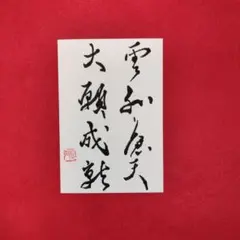 雲外蒼天
大願成就